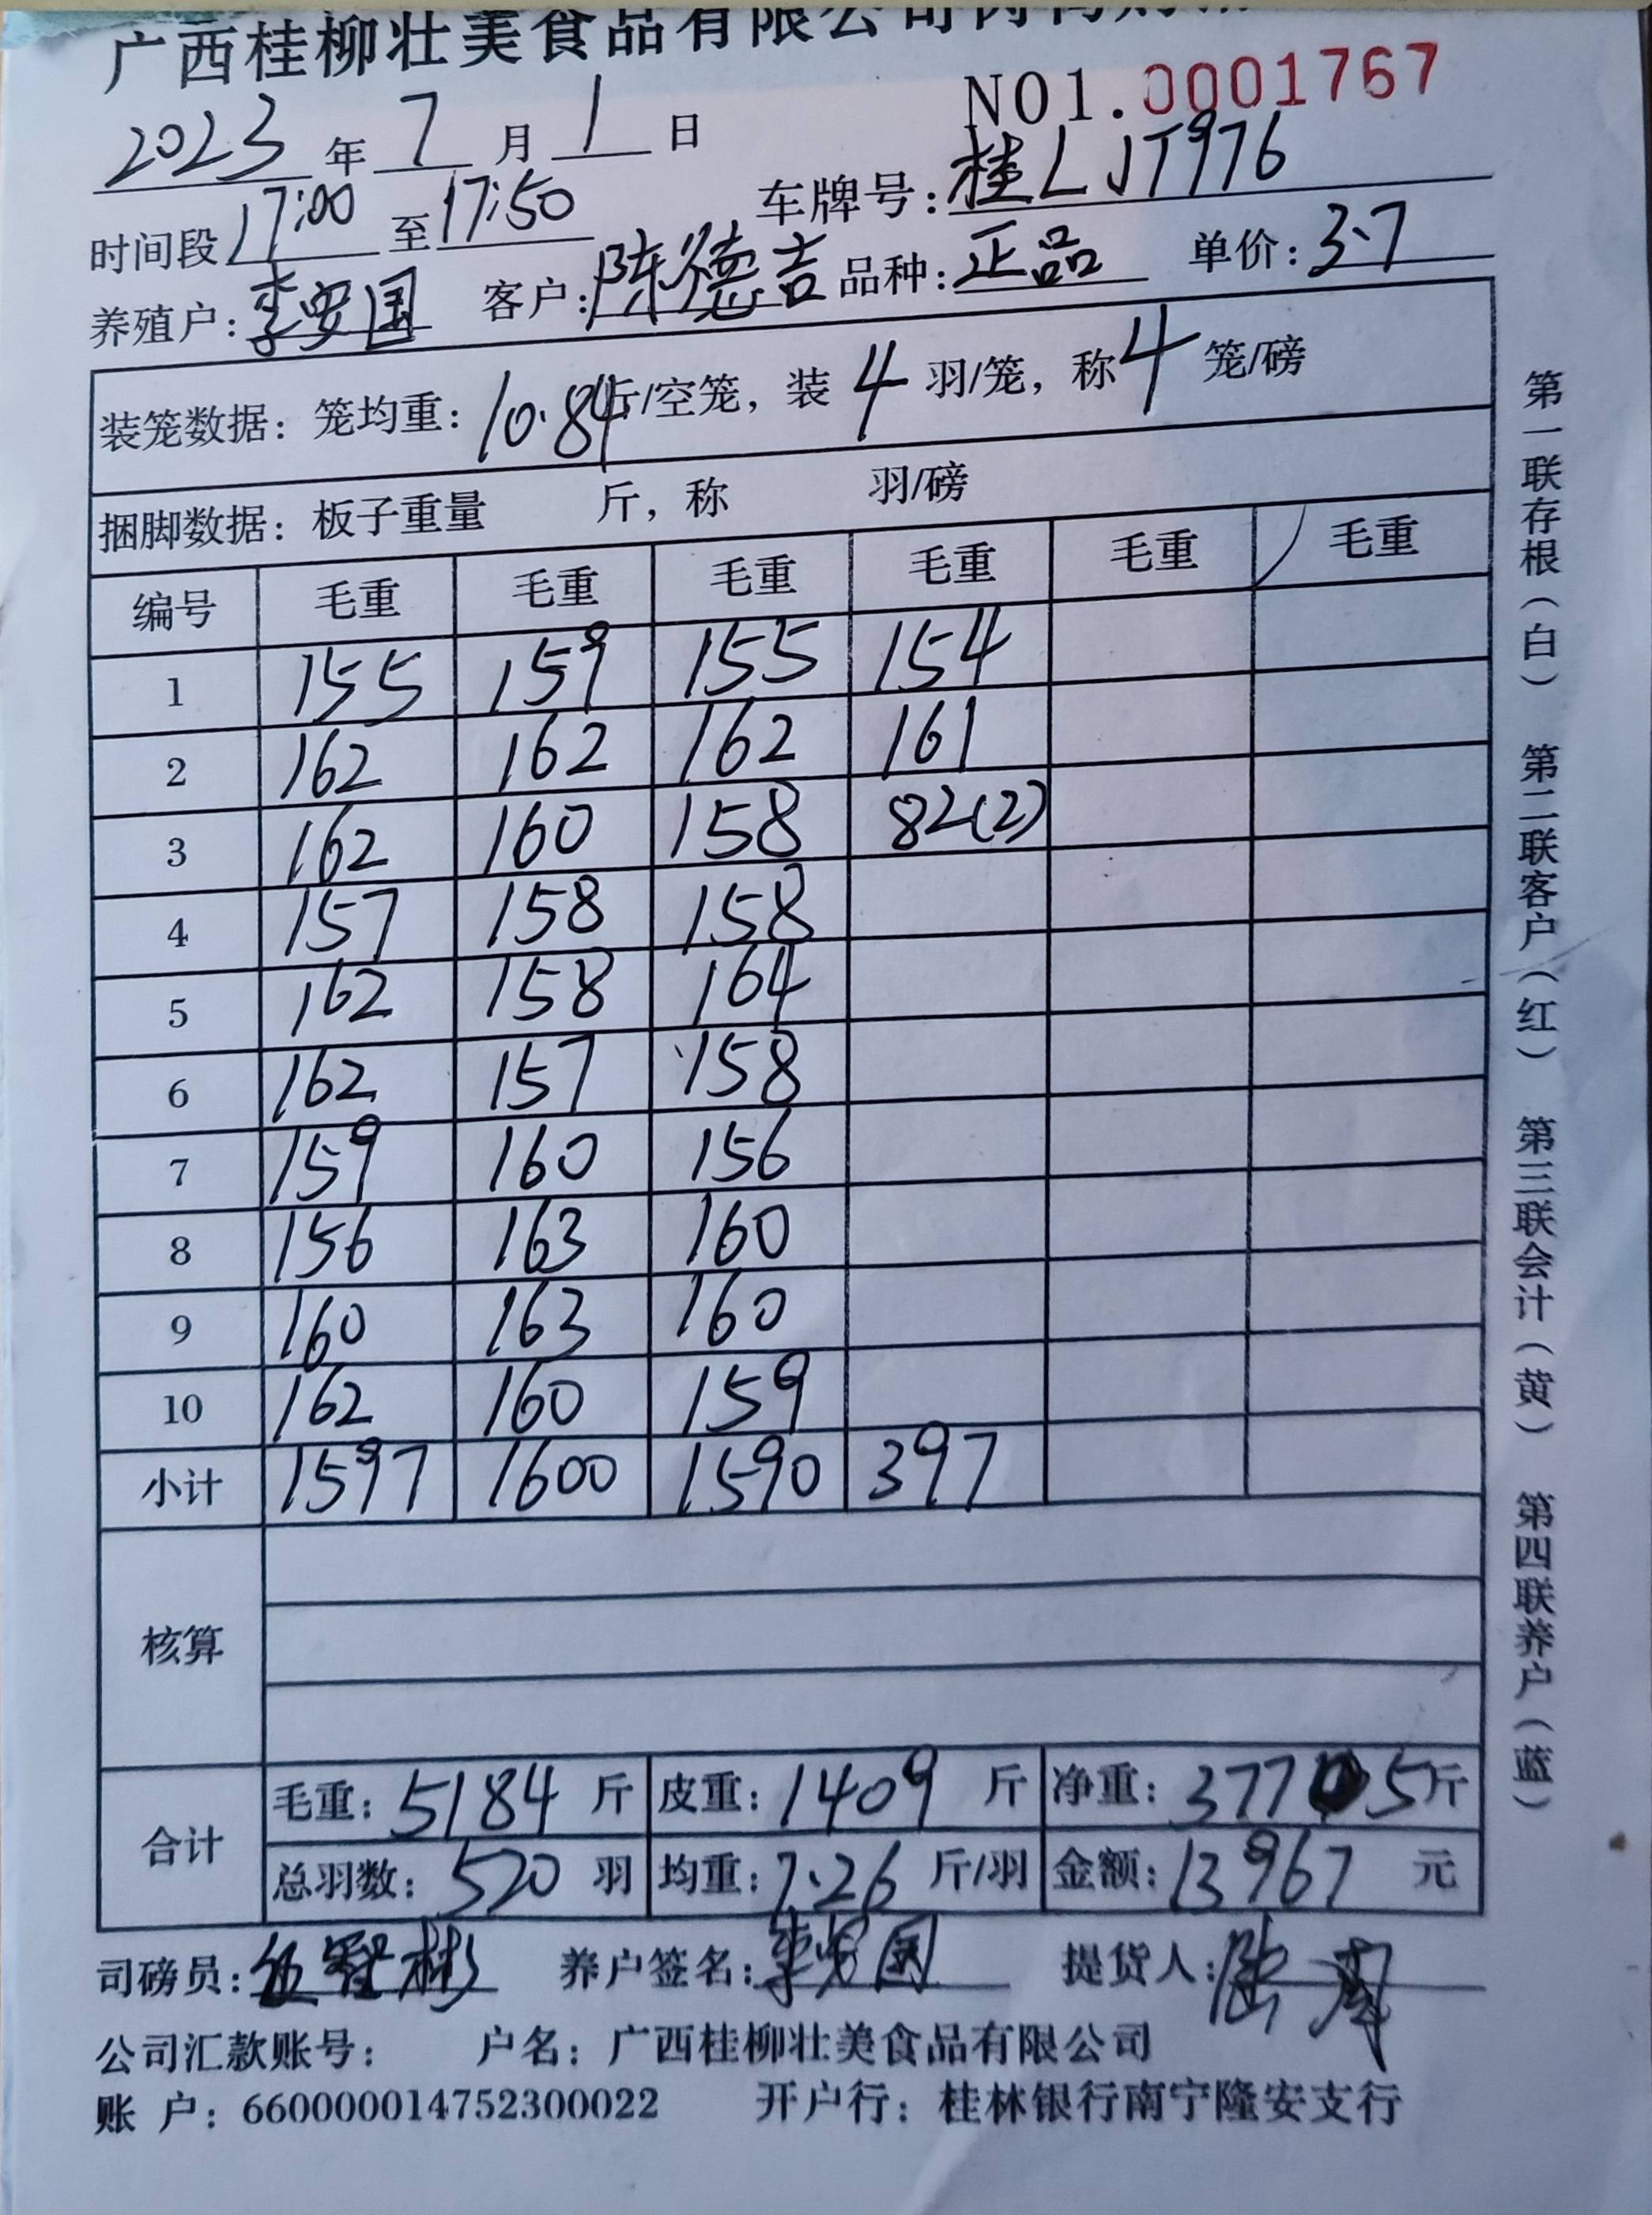 广西桂柳壮美食品有限公司
NO1.0001767
2023年7月1日
时间段17:00至17:50 车牌号:桂LJT976
养殖户:李安国 客户:陈德吉 品种:正品 单价:3.7
装笼数据:笼均重:10.84斤/空笼,装4羽/笼,称4笼/磅
捆脚数据:板子重量 斤,称 羽/磅
编号 毛重 毛重 毛重 毛重 毛重 毛重
1 155 159 155 154
2 162 162 162 161
3 162 160 158 82(2)
4 157 158 158
5 162 158 164
6 162 157 158
7 159 160 156
8 156 163 160
9 160 163 160
10 162 160 159
小计 1597 1600 1590 397
核算
合计
毛重:5184斤 皮重:1409斤 净重:3775斤
总羽数:520羽 均重:7.26斤/羽 金额:13967元
司磅员: 养户签名:李安国 提货人:
公司汇款账号: 户名:广西桂柳壮美食品有限公司
账 户:660000014752300022 开户行:桂林银行南宁隆安支行
第一联存根(白) 第二联客户(红) 第三联会计(黄) 第四联养户(蓝)